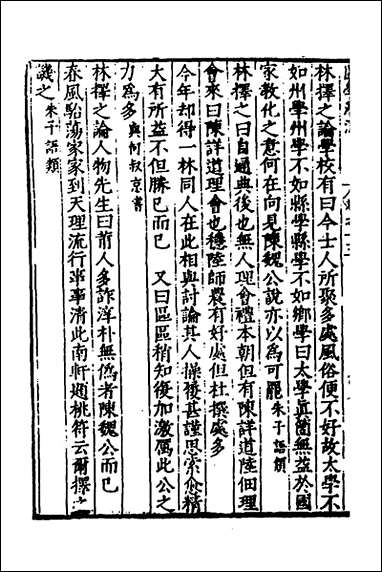 林擇之論學校有曰今士人所聚多處風俗便不好故太學不
如州學州學不如縣學縣學不如鄉學曰太學眞箇無益於國
家教化之意何在向見陳魏公說亦以為可罷朱子語類
林擇之曰自通典後也無人理會禮本朝但有陳詳道陸佃理
會來曰陳詳道理會也穩陸師農有好處但杜撰處多
今年却得一林同人在此相與討論其人操履甚謹思索愈精
大有所益不但勝已而已　又曰區區稍知復加激厲此公之
力爲多與何叔京書
林擇之論人物先生曰莆人多詐淳朴無僞者陳魏公而已
春風駘蕩家家到天理流行事事清此南軒題桃符云爾擇之
議之朱子語類